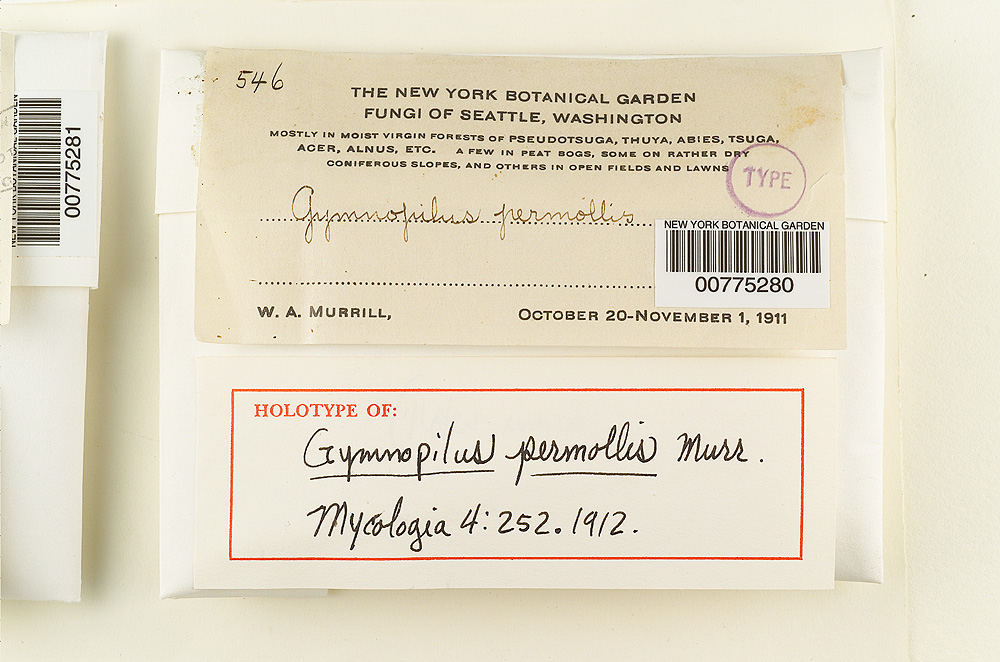 546
THE NEW YORK BOTANICAL GARDEN
FUNGI OF SEATTLE, WASHINGTON
MOSTLY IN MOIST VIRGIN FORESTS OF PSEUDOTSUGA, THUYA, ABIES, TSUGA,
ACER, ALNUS, ETC. A FEW IN PEAT BOGS, SOME ON RATHER DRY
CONIFEROUS SLOPES, AND OTHERS IN OPEN FIELDS AND LAWNS
TYPE
Gymnopilus permollis
NEW YORK BOTANICAL GARDEN
00775280
W. A. MURRILL,
OCTOBER 20-NOVEMBER 1, 1911
HOLOTYPE OF:
Gymnopilus permollis Murr.
Mycologia 4: 252. 1912.
NEW YORK BOTANICAL GARDEN
00775281